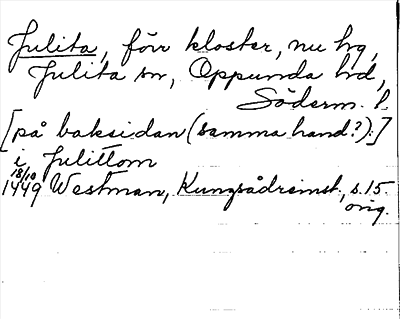 Julita, förr kloster, nu hg,
Julita sn, Oppunda hd,
Söderm. l.
[på baksidan (samma hand?):]
i Julittom
18/10
1449 Westman, Kungsådreinst., s. 15.
orig.